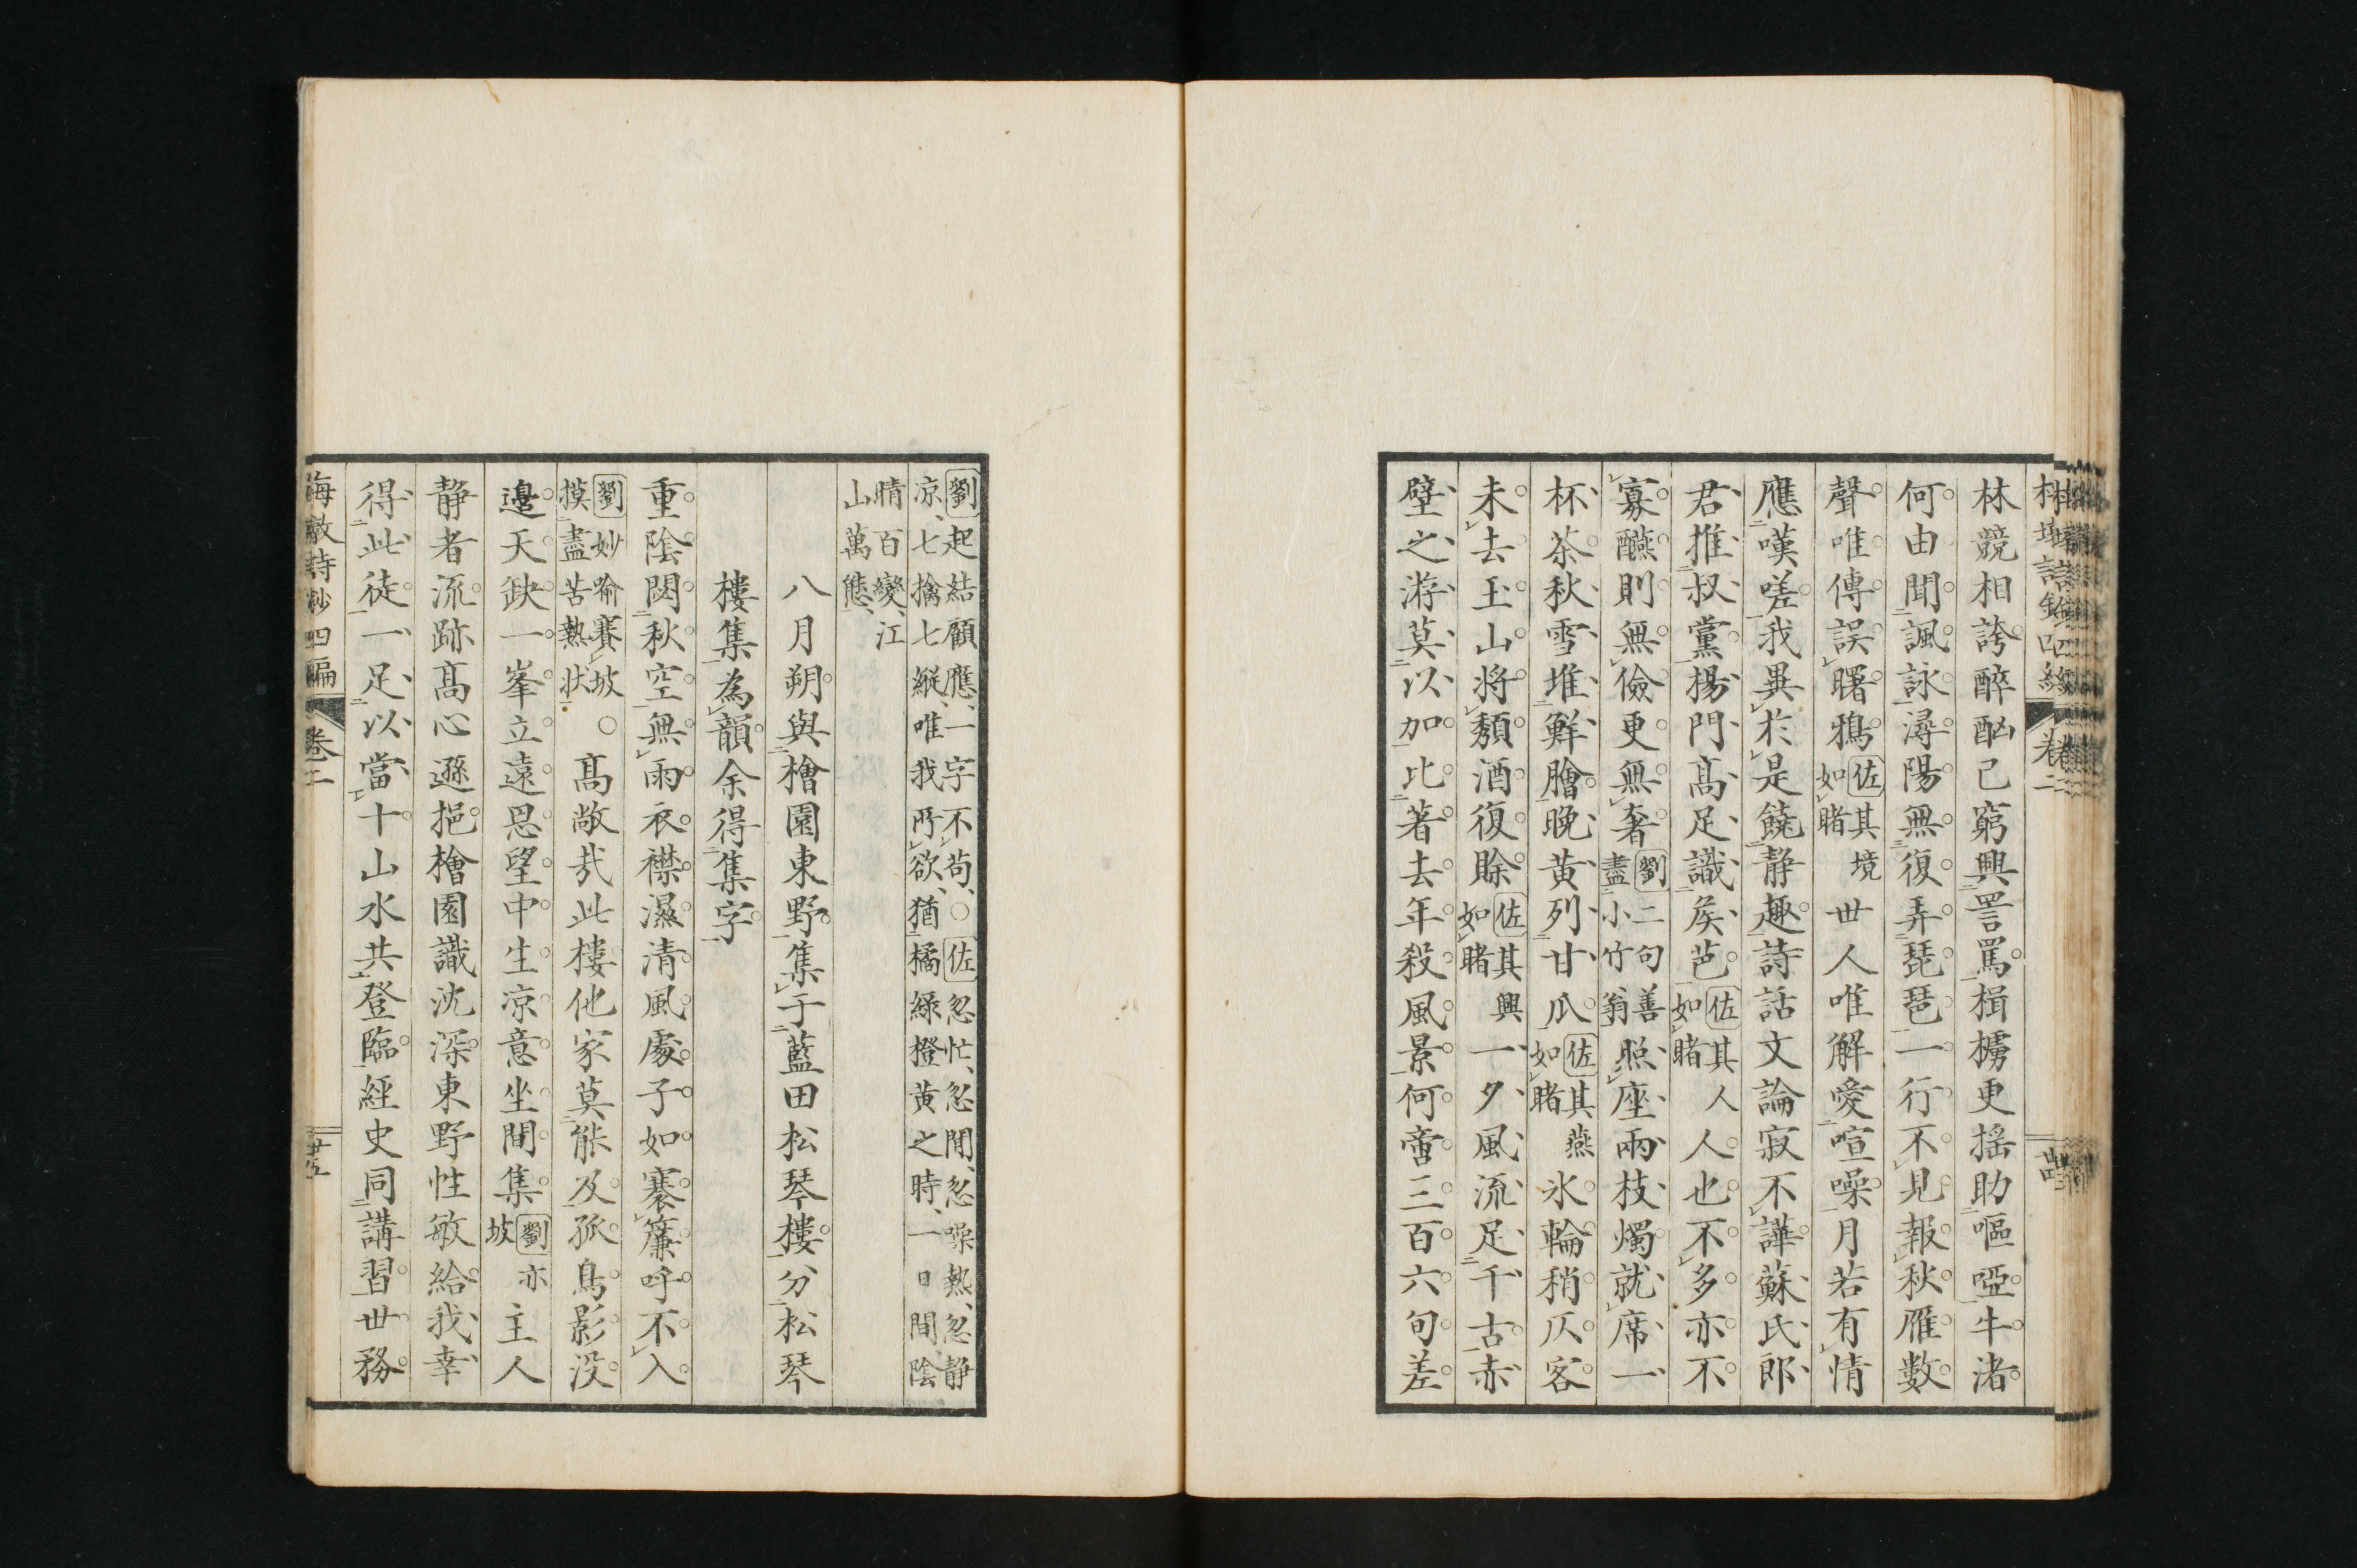 林競相誇醉酗已窮興詈罵楫櫹更搖助嘔啞牛渚
何由聞諷詠潯陽無復弄琵琶一行不見報秋雁數
聲唯傳誤曙鴉佐其境如睹世人唯解愛喧噪月若有情
應嘆嗟我異於是饒靜趣詩話文論寂不譁蘇氏郎
君推叔黨揚門高足識侯芭佐其人如睹人也不多亦不
寡醼則無儉更無奢劉二句善盡小竹翁照座兩枝燭就席一
杯茶秋雪堆鮮膾晚黃列甘瓜佐其燕如睹氷輪稍仄客
未去玉山將頹酒復賖佐其興如睹一夕風流足千古赤
壁之游莫以加比著去年殺風景何啻三百六旬差
劉起結顧應、一字不苟、○佐忽忙、忽閒、忽噪熱、忽靜
凉、七擒七縱、唯我所欲、猶橘綠橙黃之時、一日間陰
晴百變、江
山萬態、
八月朔與檜園東野集于藍田松琴樓分松琴
樓集為韻余得集字
重陰閟秋空無雨衣襟濕清風處子如褰簾呼不入
劉妙喻賽坡摸盡苦熱狀○高敞哉此樓他家莫能及孤鳥影没
邉天缺一峯立遠思望中生凉意坐間集劉亦坡主人
静者流跡高心遜挹檜園識沈深東野性敏給我幸
得此徒一足以當十山水共登臨經史同講習世務
卷二
卷二